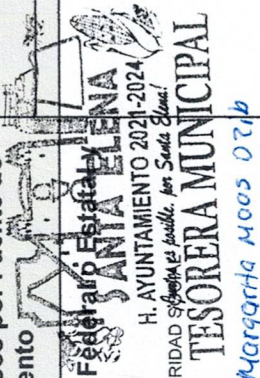 ento
Federal o Estatal y
SANTA ELENA
H. AYUNTAMIENTO 2021-2024
RIDAD S
es posible, por Santa Elena!
TESORERA MUNICIPAL
Margarita Moos Dzib